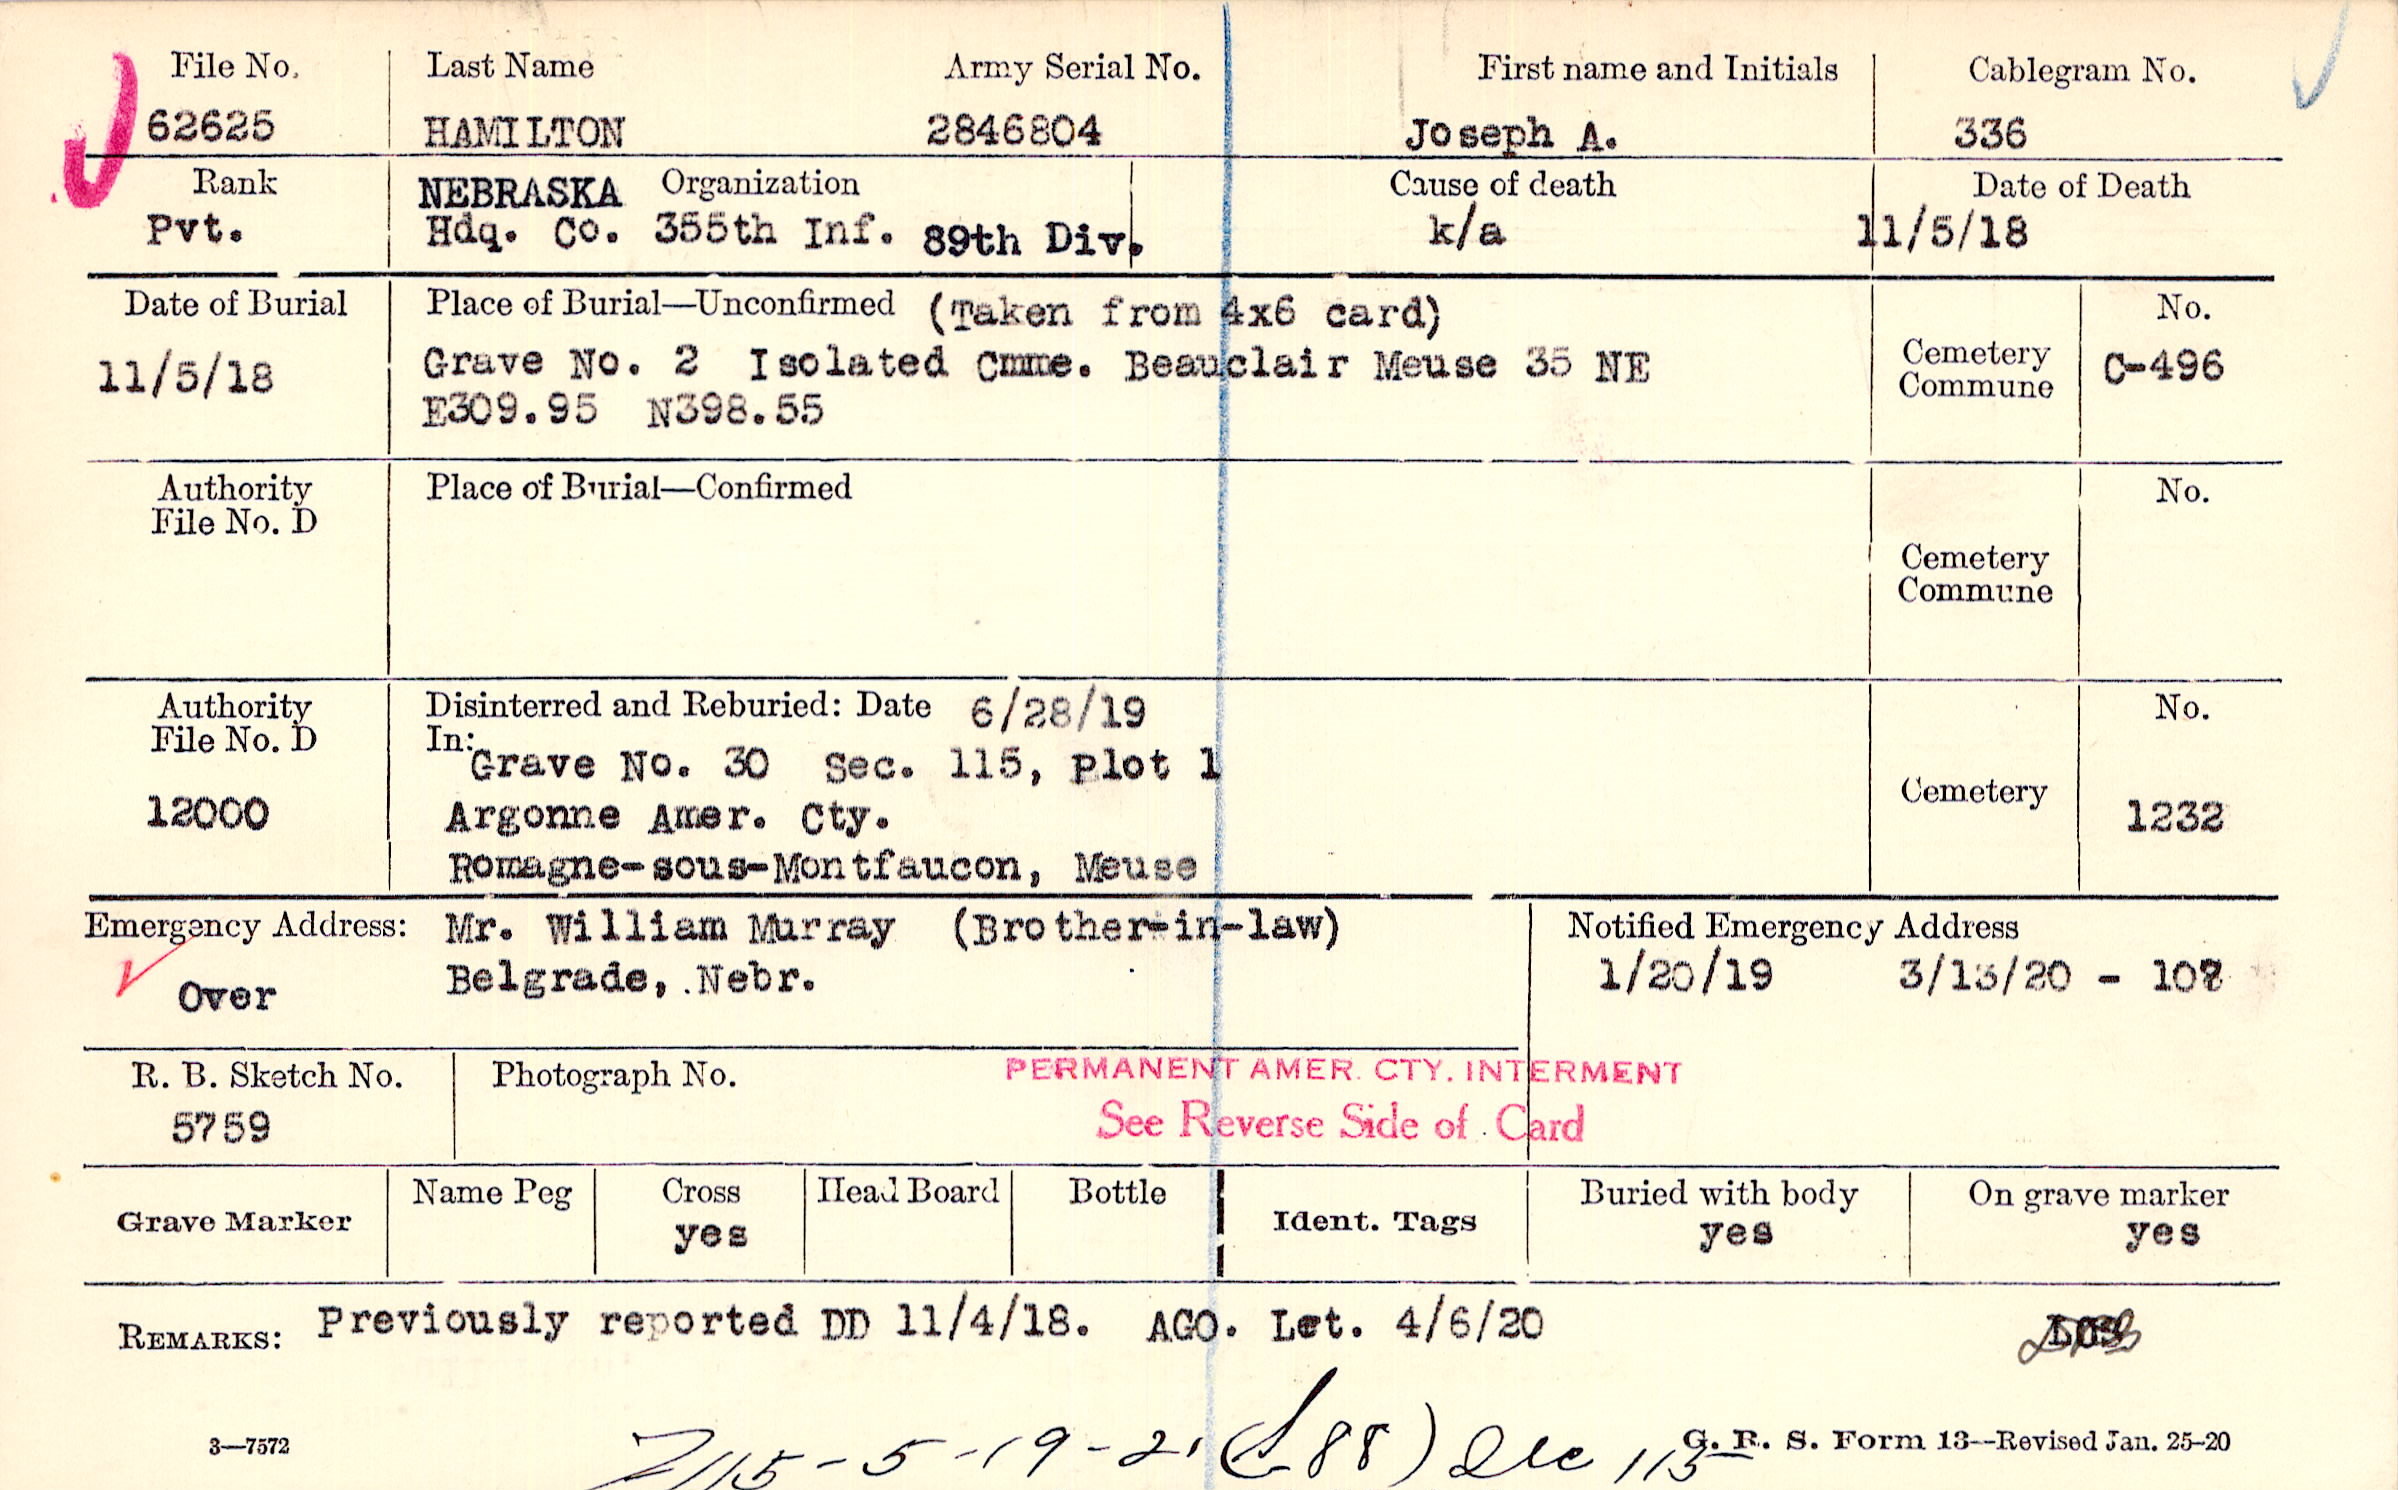 File No. Last Name Army Serial No. First name and Initials Cablegram No.
62625 HAMILTON 2846804 Joseph A. 336
Rank NEBRASKA Organization Cause of death Date of Death
Pvt. Hdq. Co. 355th Inf. 89th Div. k/a 11/5/18
Date of Burial Place of Burial—Unconfirmed (Taken from 4x6 card) No.
11/5/18 Grave No. 2 Isolated Cmme. Beauclair Meuse 35 NE Cemetery Commune C-496
E309.95 N398.55
Authority File No. D Place of Burial—Confirmed No.
Cemetery
Commune
Authority Disinterred and Reburied: Date 6/28/19 No.
File No. D In:
Grave No. 30 Sec. 115, Plot 1
12000 Argonne Amer. Cty. Cemetery 1232
Romagne-sous-Montfaucon, Meuse
Emergency Address: Mr. William Murray (Brother-in-law) Notified Emergency Address
Over Belgrade, Nebr. 1/20/19 3/13/20 -
R. B. Sketch No. Photograph No. PERMANENT AMER. CTY. INTERMENT
5759 See Reverse Side of Card
Grave Marker Name Peg Cross Head Board Bottle Ident. Tags Buried with body On grave marker
yes yes yes
REMARKS: Previously reported DD 11/4/18. AGO. Let. 4/6/20
3—7572 G. R. S. Form 13--Revised Jan. 25-20